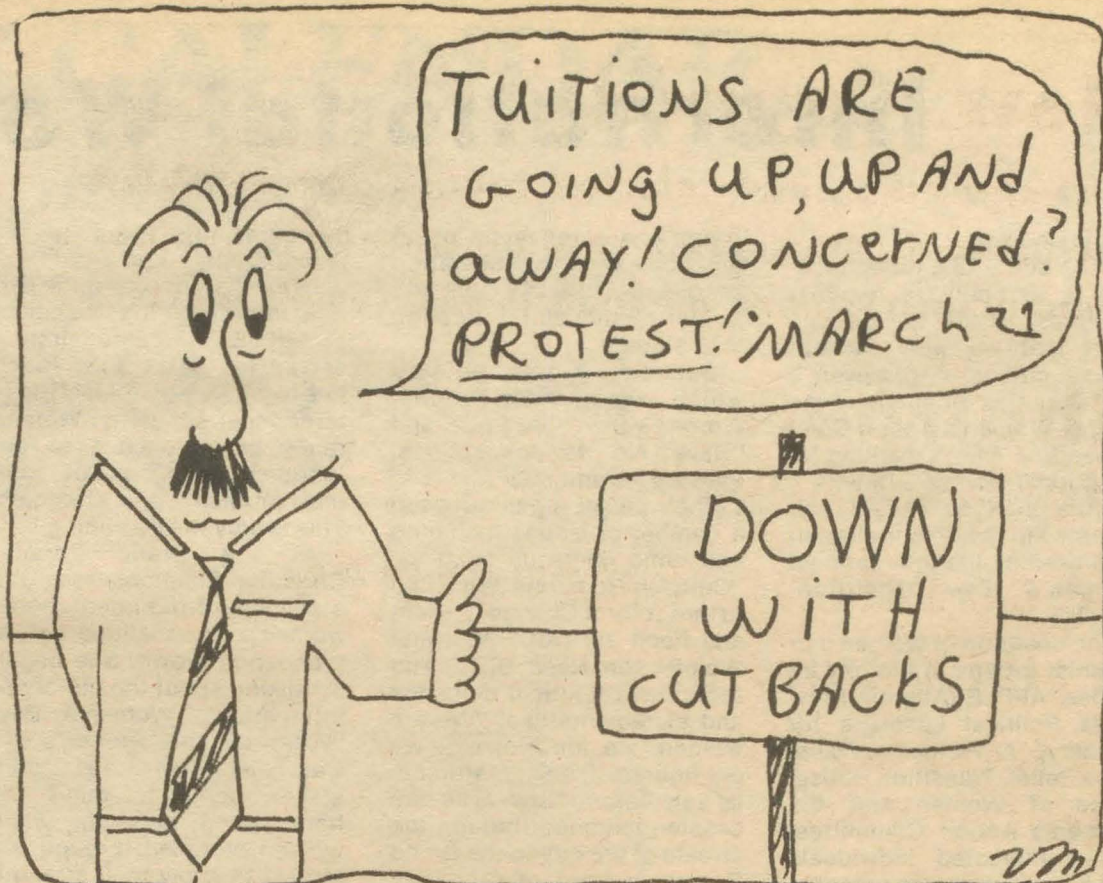 TUITIONS ARE
GOING UP, UP AND
AWAY! CONCERNED?
PROTEST! MARCH 21
DOWN
WITH
CUTBACKS